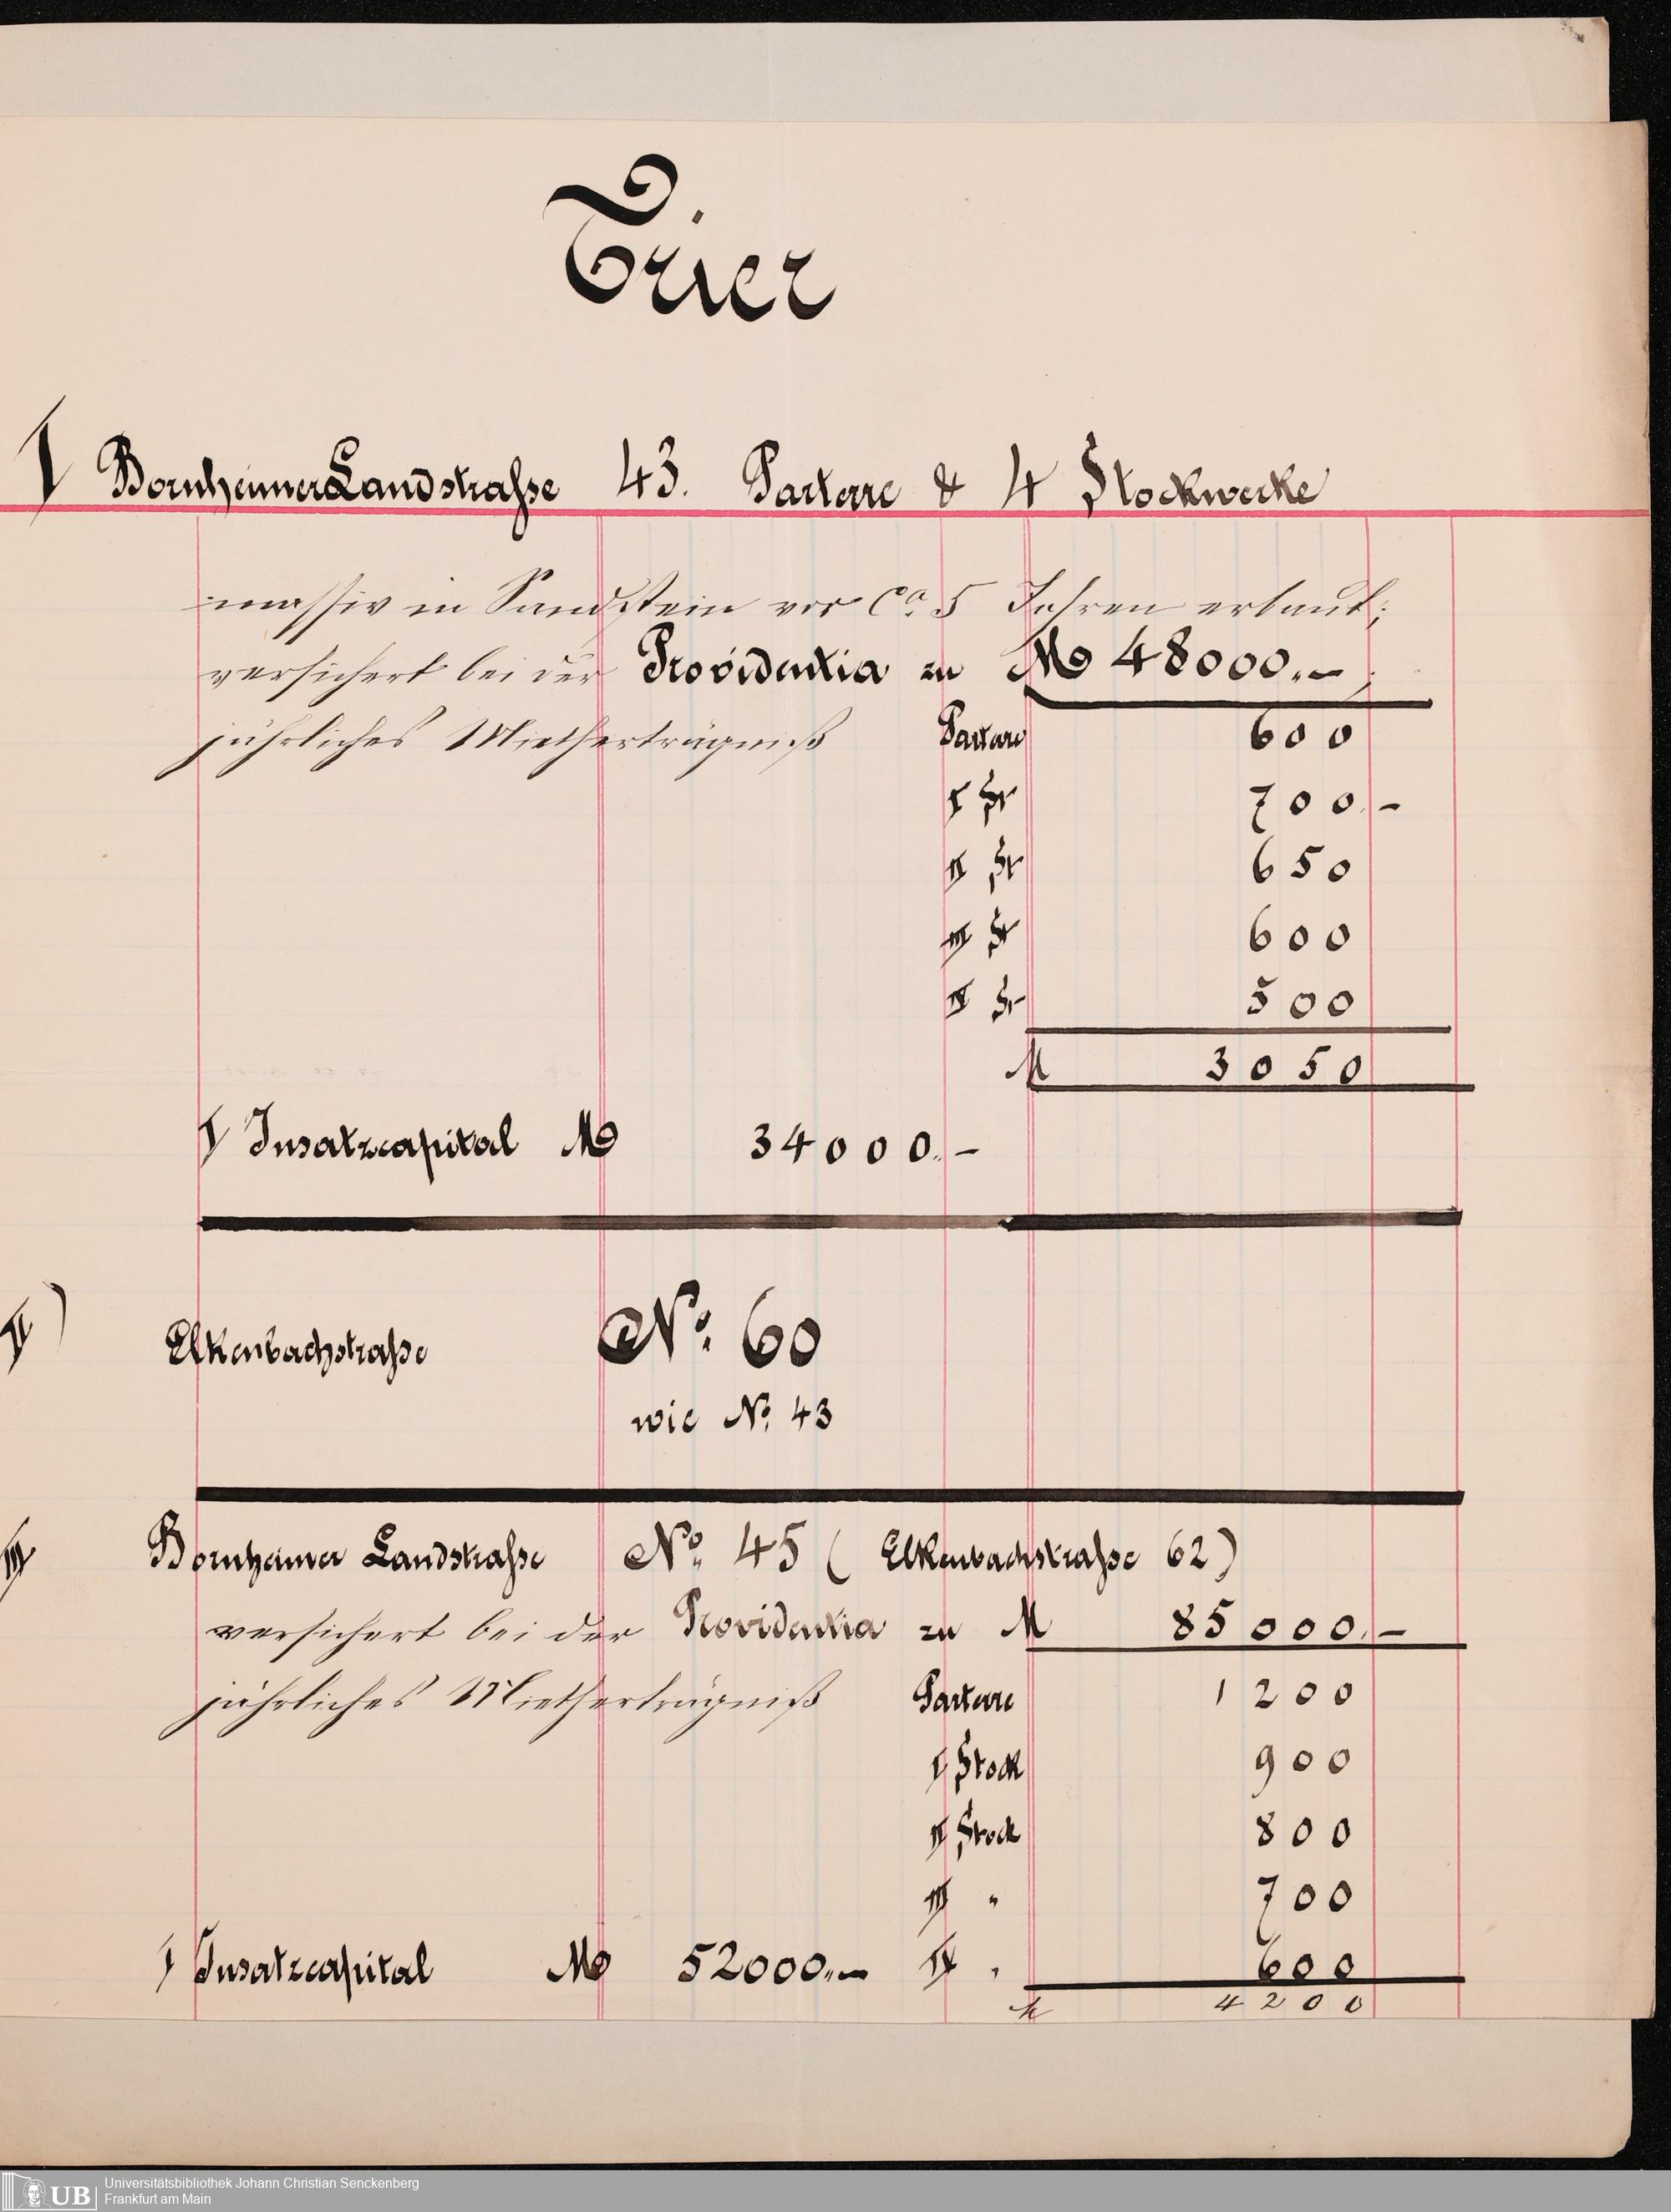 Trier
I Bornheimer Landstraße 43. Parterre & 4 Stockwerke
massiv in Sandstein vor Ca. 5 Jahren erbaut;
versichert bei der Providentia zu M 48000.-;
jährliches Mietherträgniß Parterre 600
I St 700.-
II St 650
III St 600
IV St 500
M 3050
I Insatzcapital M 34000.-
II) Elkenbachstraße No. 60
wie No. 43
III Bornheimer Landstraße No. 45 (Elkenbachstraße 62)
versichert bei der Providentia zu M 85000.-
jährliches Mietherträgniß Parterre 1200
I Stock 900
II Stock 800
III " 700
I Insatzcapital M 52000.- IV " 600
M 4200
UB Universitätsbibliothek Johann Christian Senckenberg
Frankfurt am Main